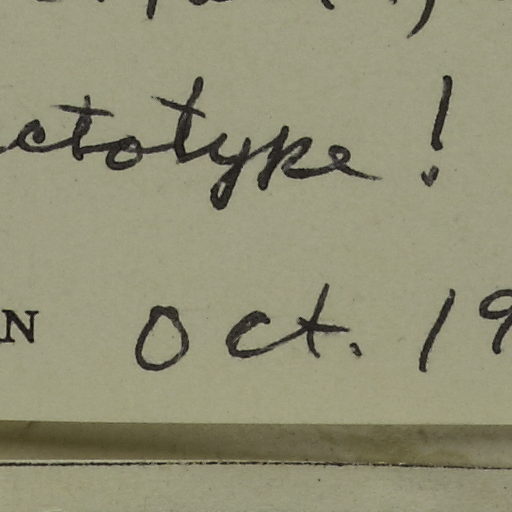 ctotype!
N Oct. 19